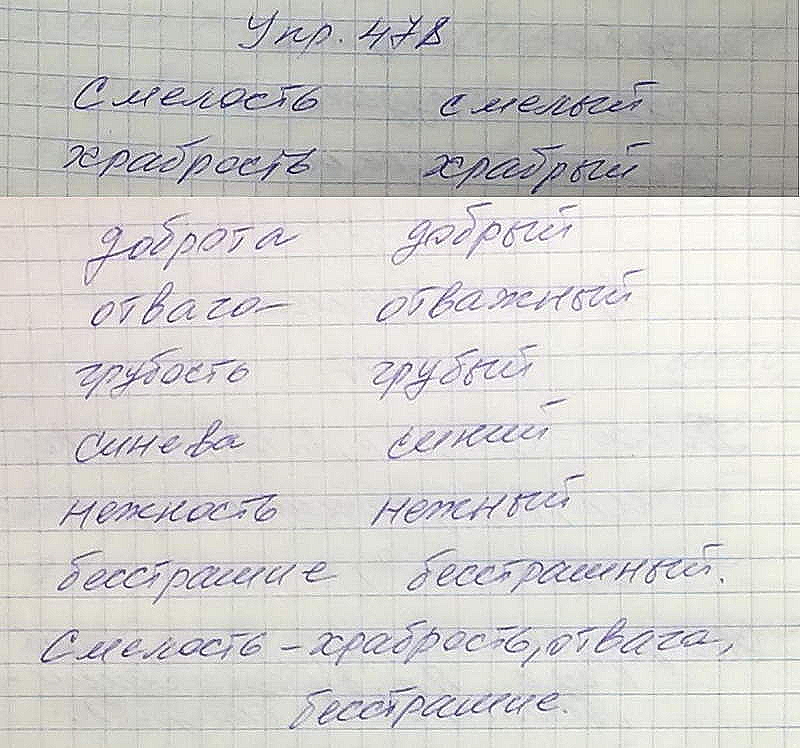 Упр. 478
Смелость смелый
храбрость храбрый
доброта добрый
отвага отважный
грубость грубый
синева синий
нежность нежный
бесстрашие бесстрашный.
Смелость – храбрость, отвага,
бесстрашие.